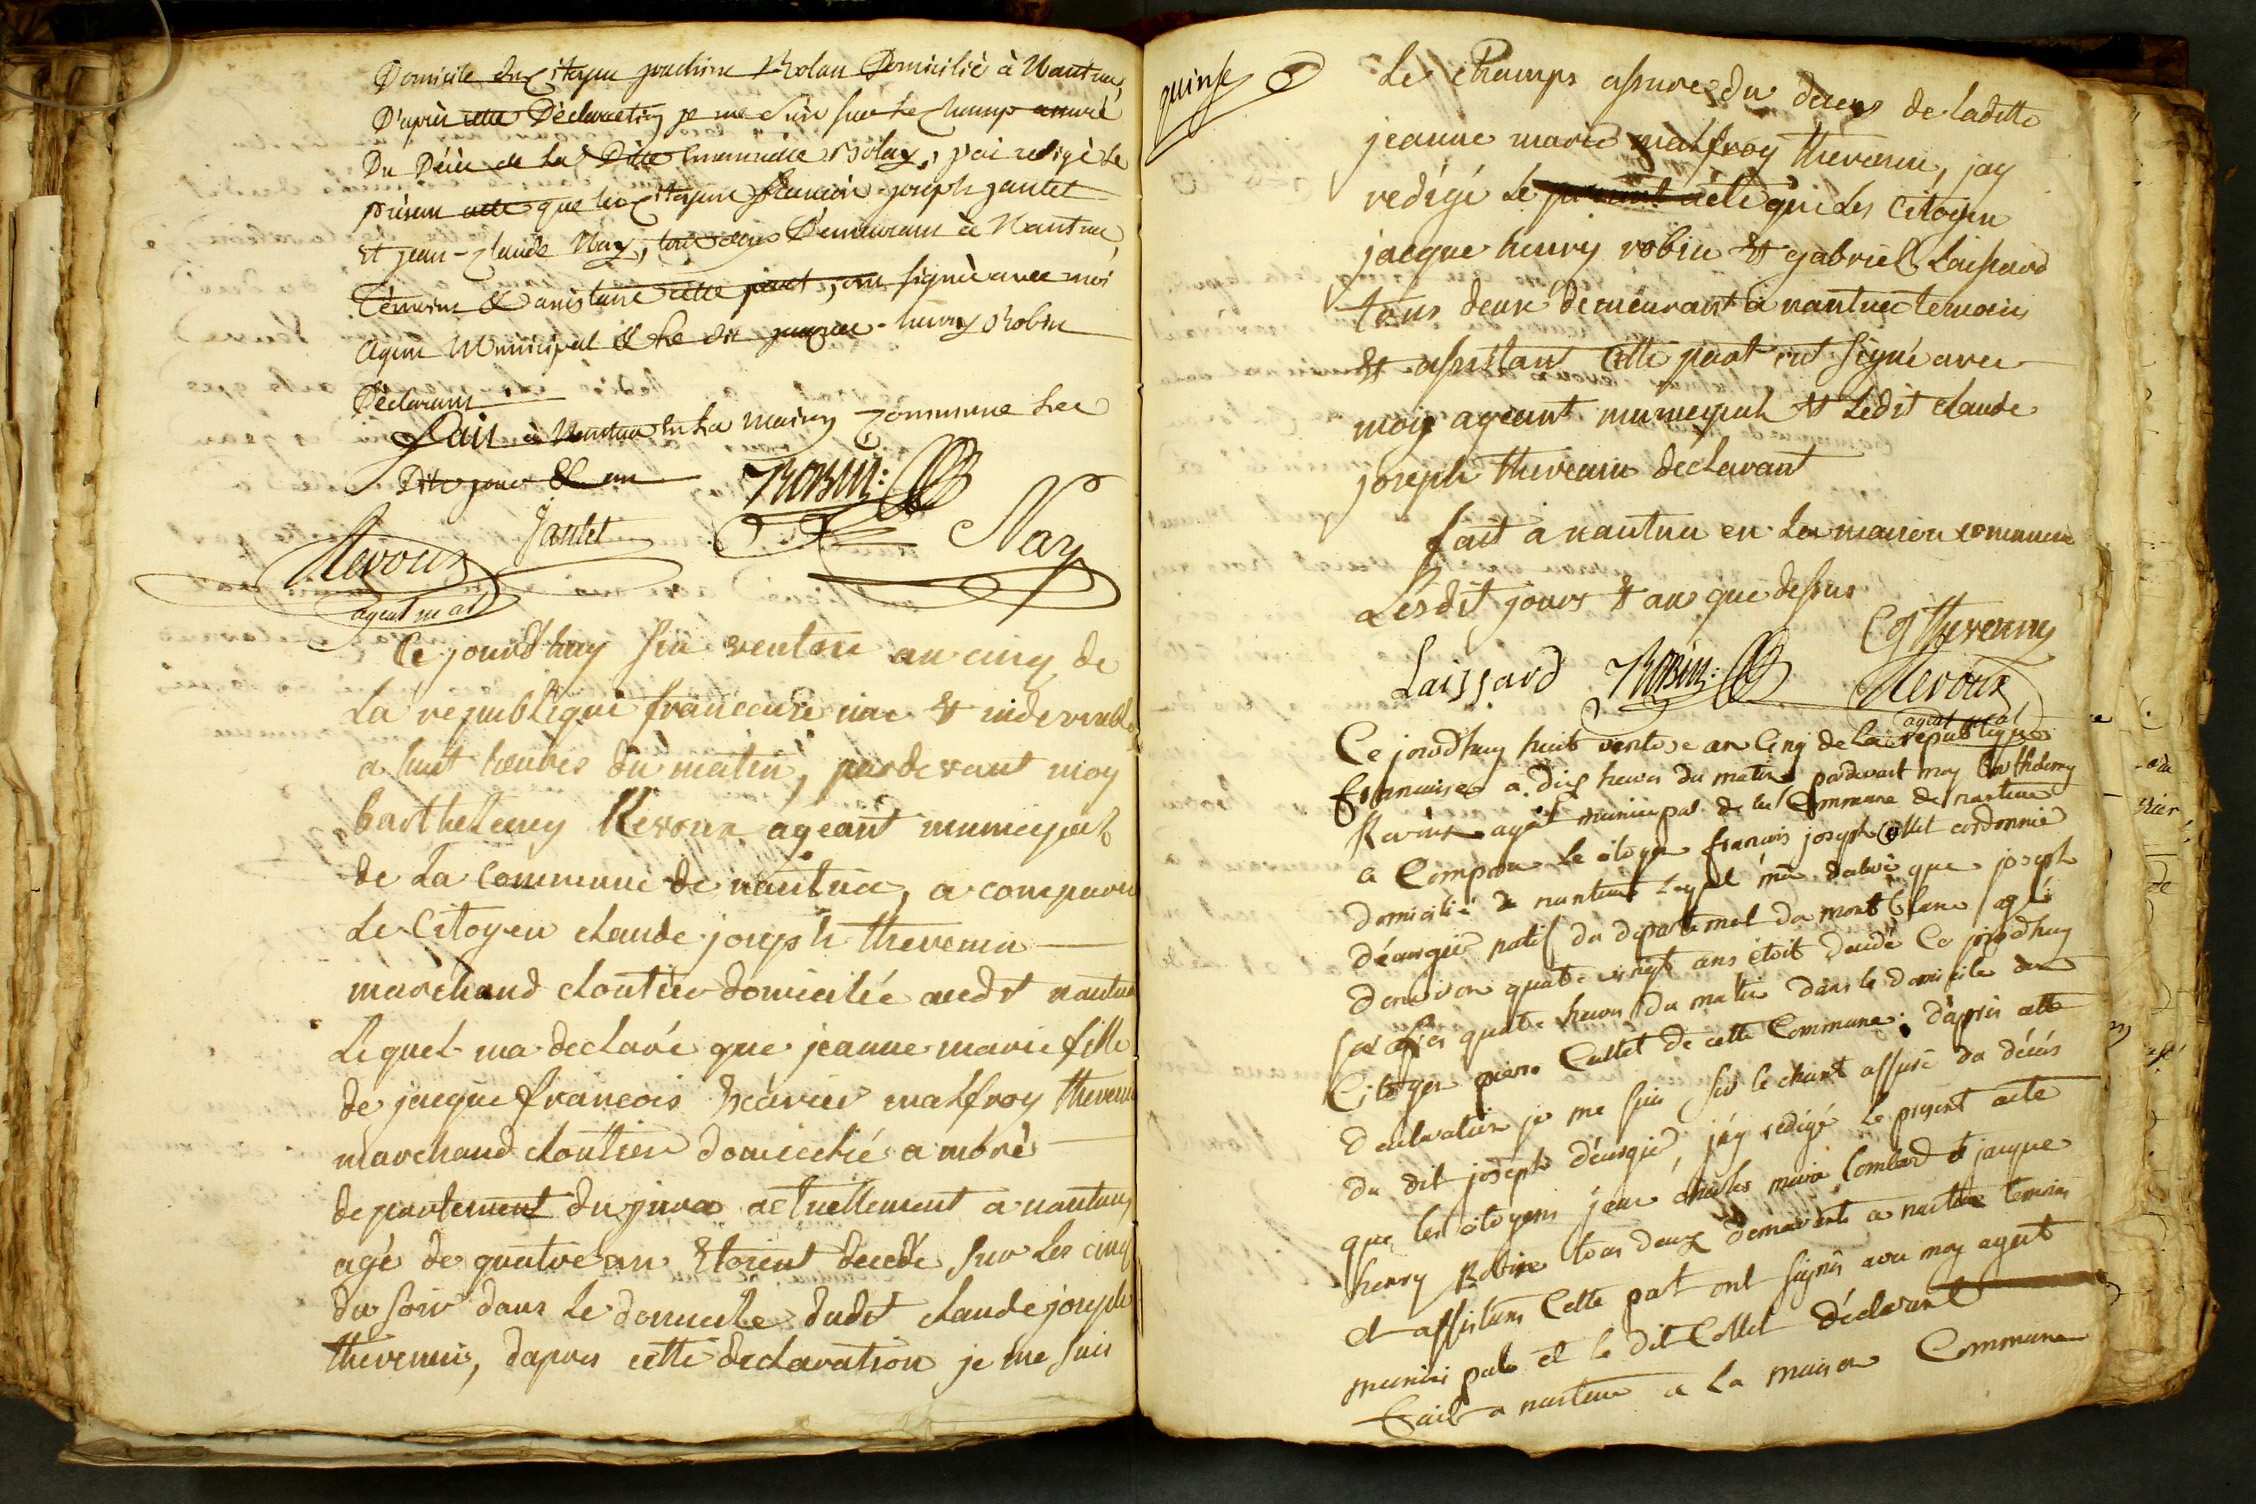 Domicile du Citoyen joachim Rolan Domicilié à Nantua,
D'après cette Déclaration je me suis sur le Champ assuré
Du Décès de la Dite Rolay, j'ai redigé le
présent acte que les Citoyen françois joseph jantet
et jean-Claude Nay, tous deux Demeurans à Nantua
Témoins & assistans cette part, ont signé avec moi
Agent Municipal & le dit jacques-henry Robin
Déclarant
Fait à Nantua en la maison commune les
Dits jour & an
Robin
jantet Nay
Revoux
agent m al
Ce jourd'huy six ventose an cinq de
La republique francaise une & indivisible
a huit heures du matin, pardevant moy
barthelemy Revoux ageant municipal
de La Commune de nantua, a comparu
Le Citoyen claude joseph thevenin
marchand cloutier domicilié audit nantua
Lequel ma declaré que jeanne marie fille
de jacque francois Xavier malfroy thevenin
marchand cloutier domicilié a morés
departement du jura actuellement a nantua
agé de quatre an Etoient decedé sur les cinq
du soir dans Le domicile dudit claude joseph
thevenin, dapres cette declaration je me suis
quinse
Le Champs assure du deces de Laditte
jeanne marie malfroy thevenin, jay
redigé Le present acte que Les Citoyen
jacque henry robin & gabriel Laissard
tous deux demeurant a nantua temoins
& assistant Cette part ont signé avec
moy ageant municipal & Ledit claude
joseph thevenin declarant
fait a nantua en La maison commune
Lesdit jours & an que dessus
Laissard Robin CJ Thevenin
Revoux
agent m al
Ce jourdhuy huit ventose an Cinq de la republique
francaise a dix heures du matin pardevant moy barthelemy
Revoux agent municipal de la Commune de nantua
a Comparu le citoyen francois joseph Collet cordonnié
domicilié a nantua Lequel m'a déclaré que joseph
déurgié natif du departemet du mont blanc agé
denviron quatre vingt ans étoit decidé Ce jourdhuy
sur les quatre heures du matin dans le domicile du
Citoyen pierre Cullet de cette Commune; d'après cette
declaration je me suis sur le chant assuré du décés
du dit joseph déurgié, j'ay redigé le present acte
que les citoyens jean charles marie Lombard et jacque
henry Robin tous deux demeurants a nantua temoins
et assistans Cette part ont signés avec moy agent
municipale et le dit Collet déclarant
Fait a nantua a la maison Commune